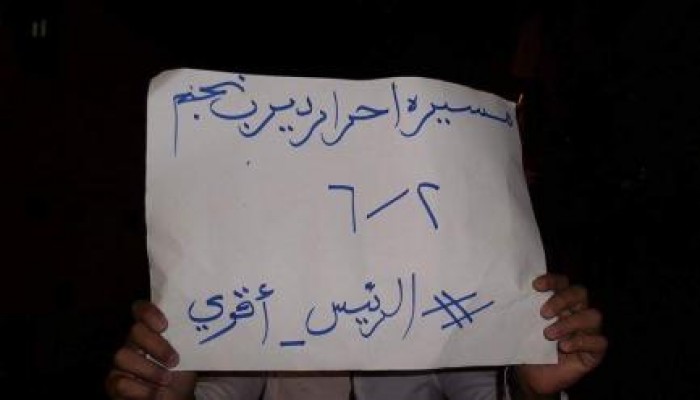 مسيره احرار ديرب نجم
٦/٢
#الرئيس_أقوي